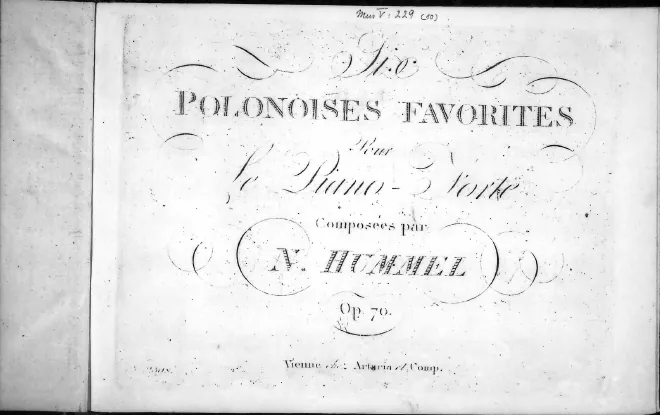 Mus V: 229 (10)
Six
POLONOISES FAVORITES
Pour
le Piano-Forte
Composées par
N. HUMMEL
Op. 70.
Vienne chez Artaria et Comp.